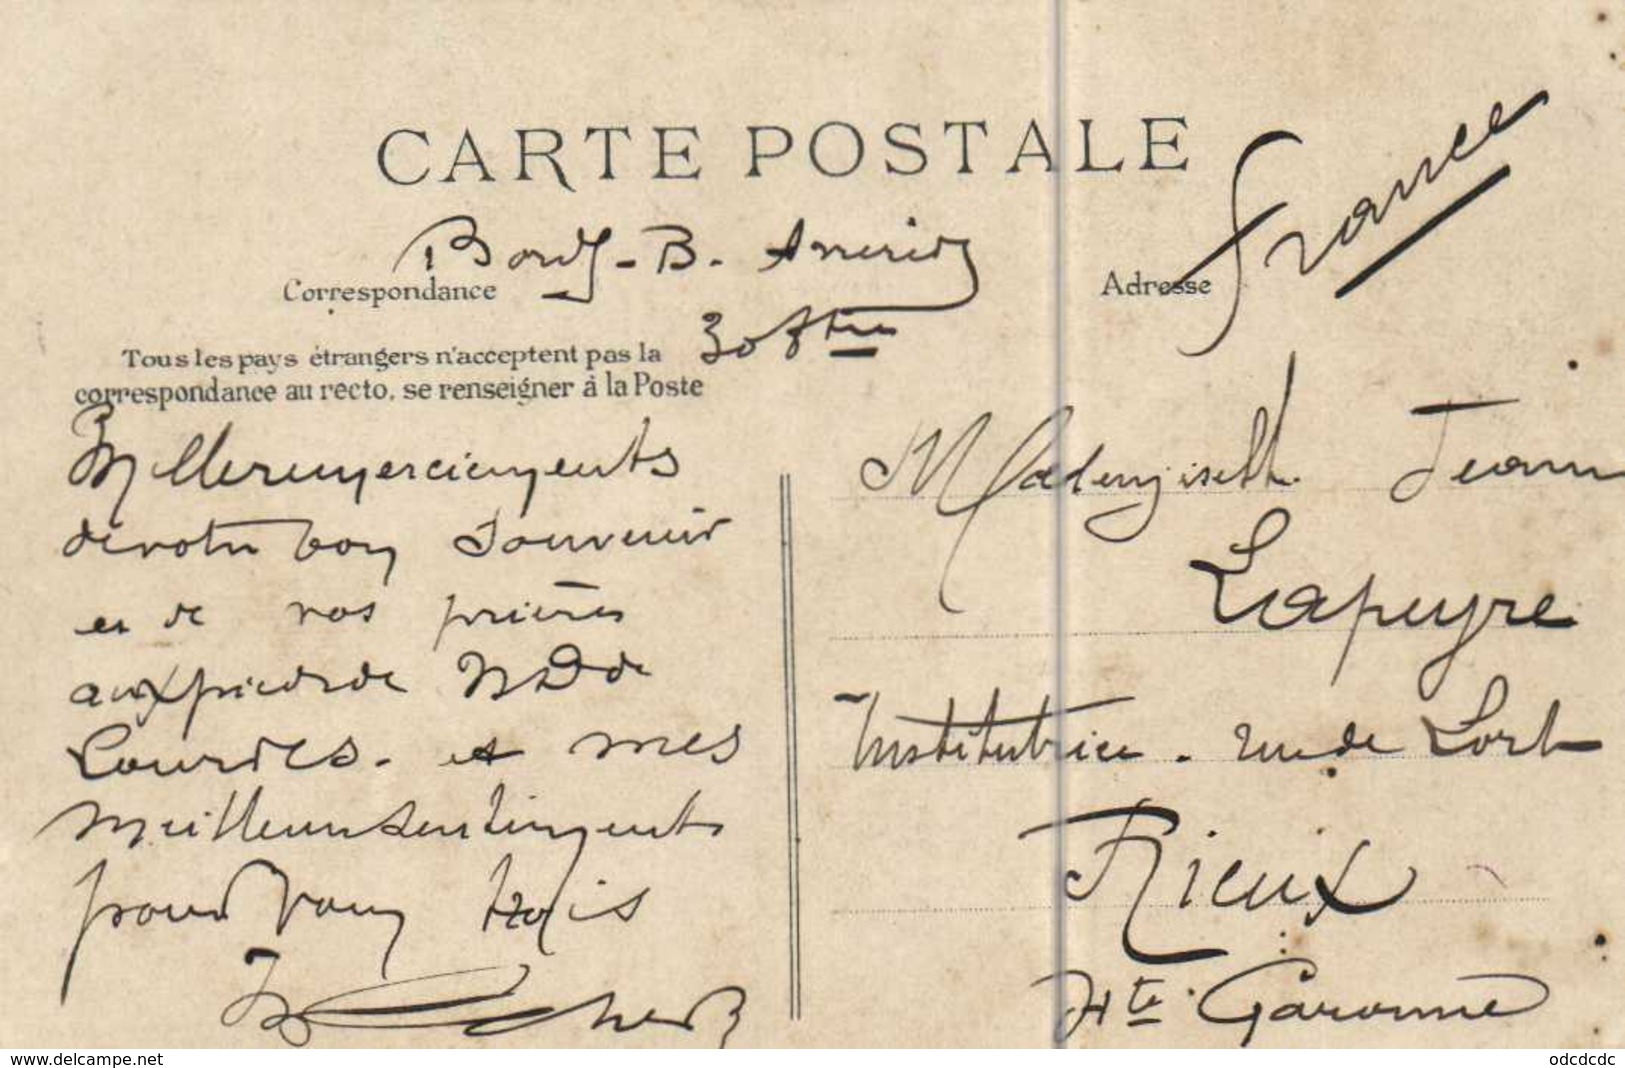 CARTE POSTALE
France
B. Amérid
Correspondance
Adresse
30 8bre
Tous les pays étrangers n'acceptent pas la
correspondance au recto, se renseigner à la Poste
Mille remerciements
de votre bon souvenir
et de vos prières
aux pieds de ND de
Lourdes. et mes
meilleurs sentiments
pour vous trois
Mademoiselle Jeanne
Lapeyre
Institutrice - rue de Lort
Rieux
Hte Garonne
www.delcampe.net
odcdcdc